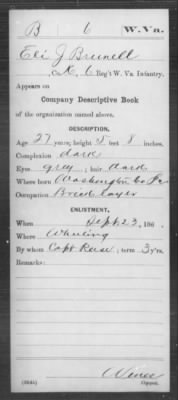 B 6 W. Va.
Eli J Brunell
K, 6 Reg't W. Va. Infantry.
Appears on
Company Descriptive Book
of the organization named above.
DESCRIPTION.
Age 27 years; height 5 feet 8 inches.
Complexion dark
Eyes grey; hair dark
Where born Washington Co Pa
Occupation Brick layer
ENLISTMENT.
When Sept 23, 186 .
Where Wheeling
By whom Capt ; term 3 yrs.
Remarks:
Copyist.